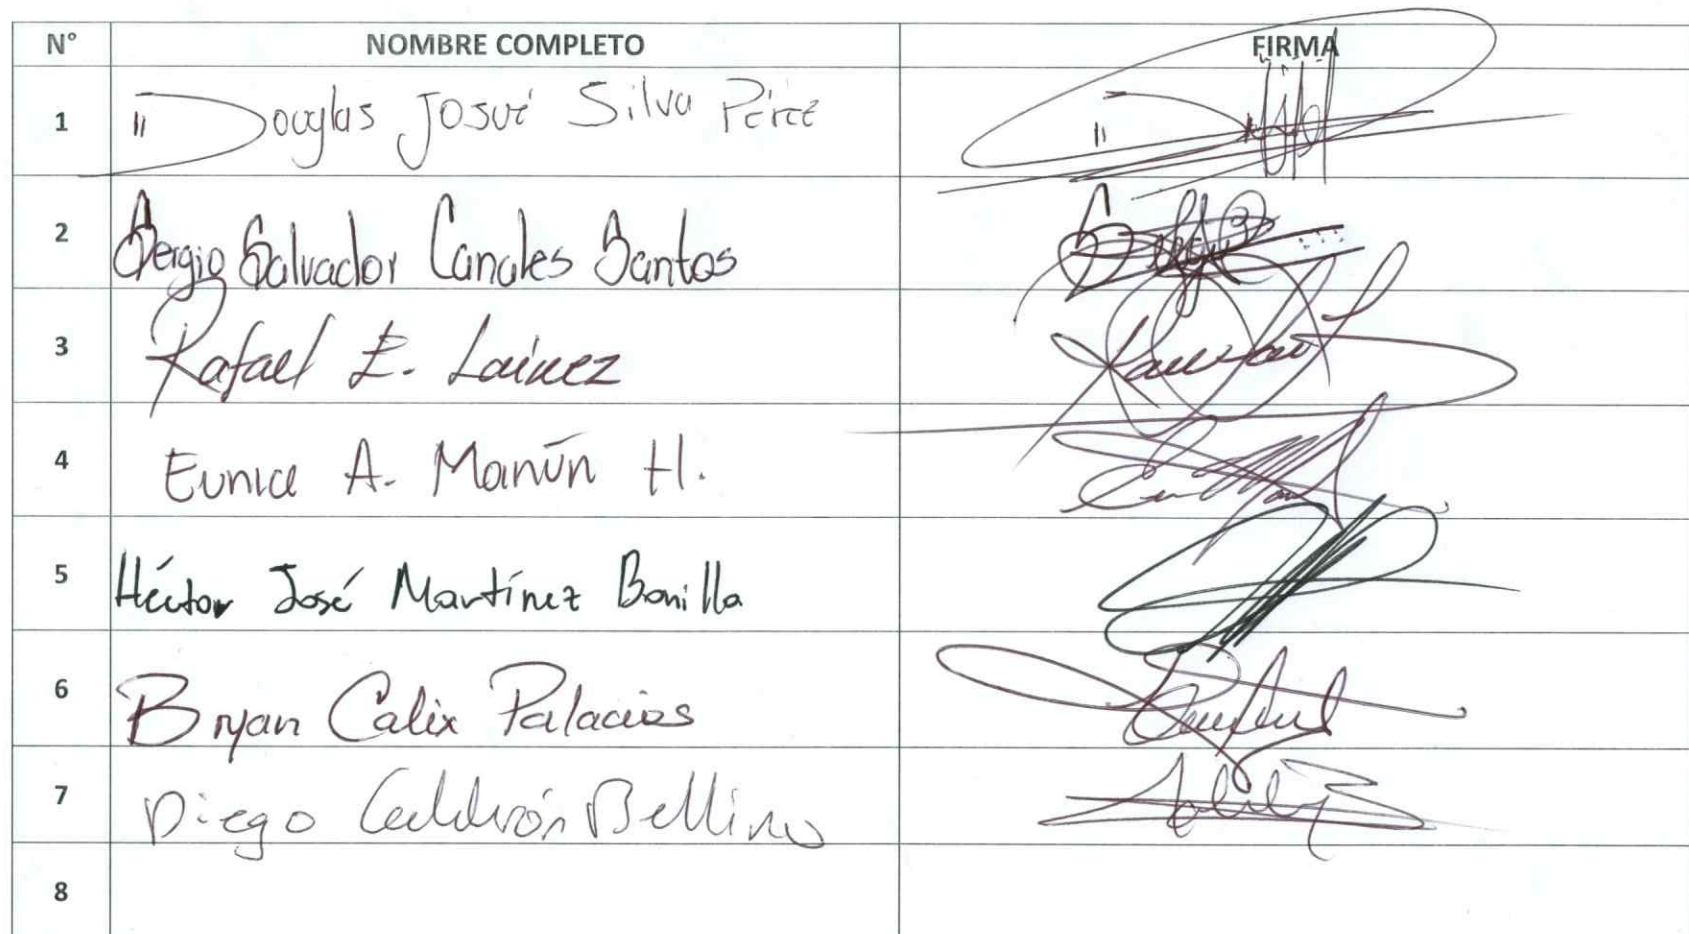 N° NOMBRE COMPLETO FIRMA
1 Douglas Josué Silva Pérez
2 Sergio Salvador Canales Santos
3 Rafael E. Laínez
4 Eunice A. H.
5 Héctor José Martínez Bonilla
6 Bryan Calix Palacios
7 Diego Calderón Bellino
8